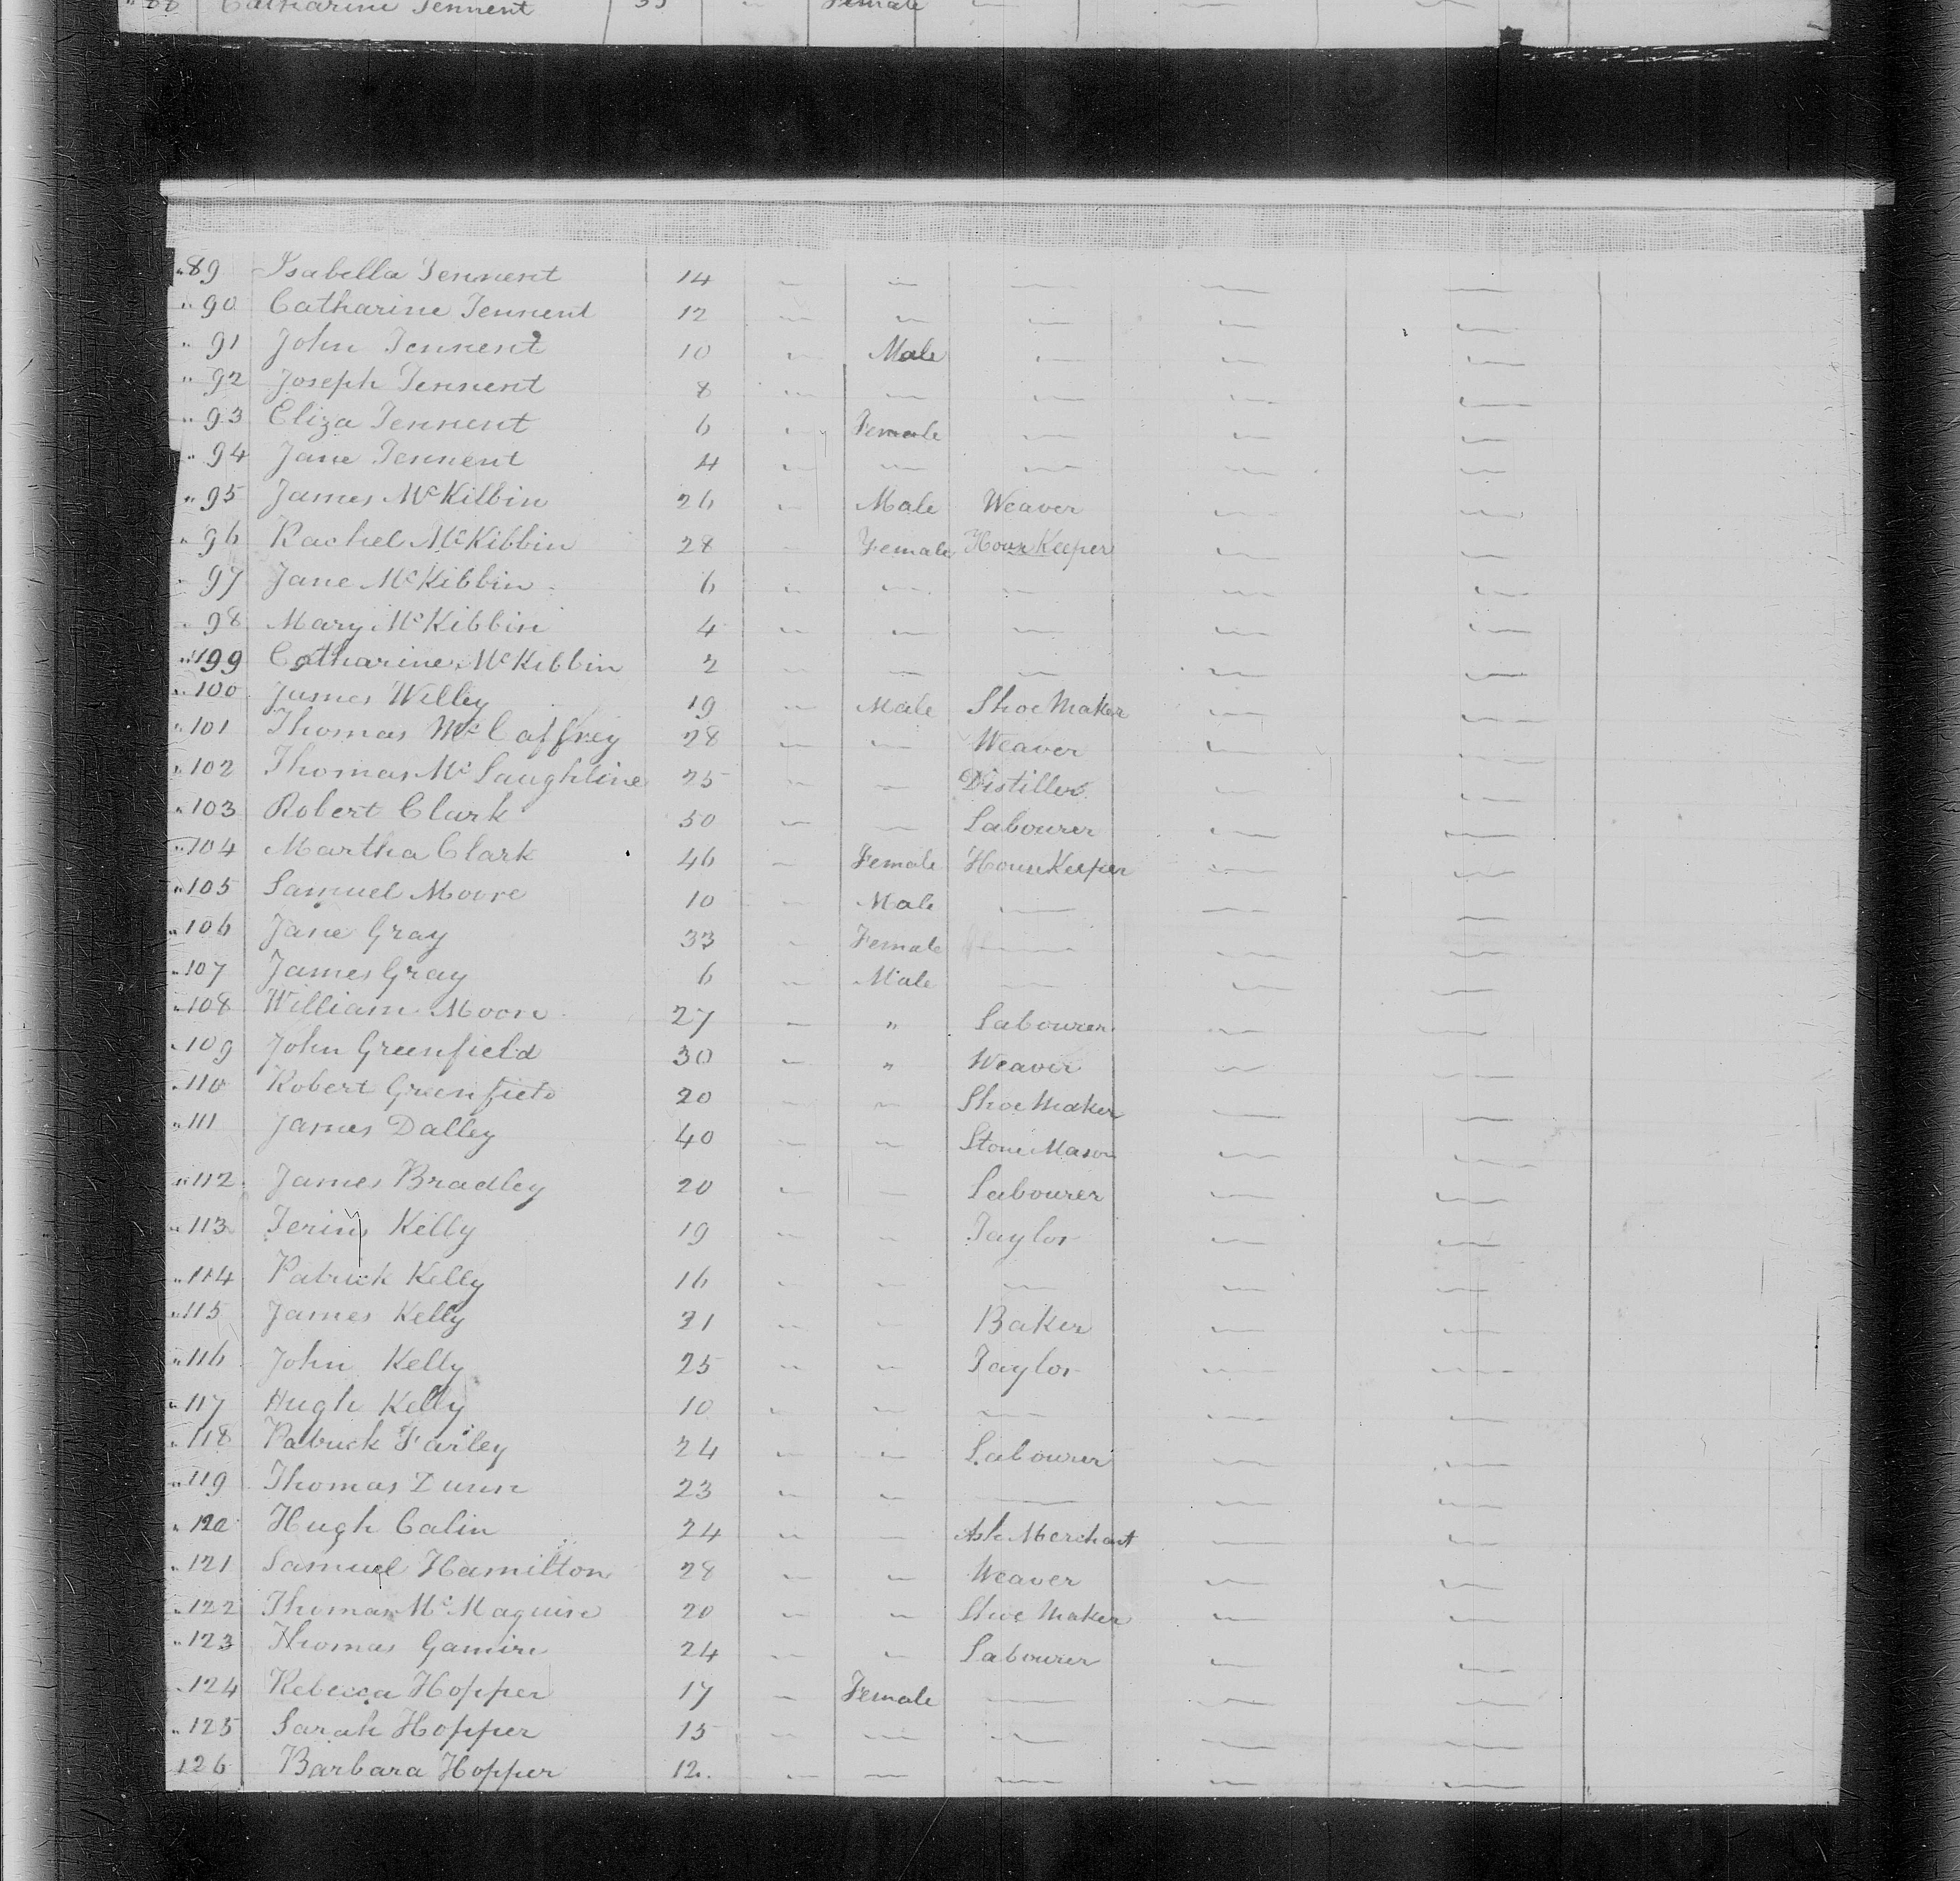 88 Catharine Tennent 35 " Female — — —
" 89 Isabella Tennent 14 " " — — —
" 90 Catharine Tennent 12 " " — — —
" 91 John Tennent 10 " Male — — —
" 92 Joseph Tennent 8 " " — — —
" 93 Eliza Tennent 6 " Female — — —
" 94 Jane Tennent 4 " " — — —
" 95 James McKibbin 26 " Male Weaver — —
" 96 Rachel McKibbin 28 " Female House Keeper — —
" 97 Jane McKibbin 6 " " — — —
" 98 Mary McKibbin 4 " " — — —
" 99 Catharine McKibbin 2 " " — — —
" 100 James Willey 19 " Male Shoe Maker — —
" 101 Thomas McCaffrey 28 " " Weaver — —
" 102 Thomas McLaughline 25 " " Distiller — —
" 103 Robert Clark 50 " " Labourer — —
" 104 Martha Clark 46 " Female House Keeper — —
" 105 Samuel Moore 10 " Male — — —
" 106 Jane Gray 33 " Female — — —
" 107 James Gray 6 " Male — — —
" 108 William Moore 27 " " Labourer — —
" 109 John Greenfield 30 " " Weaver — —
" 110 Robert Greenfield 20 " " Shoe Maker — —
" 111 James Dalley 40 " " Stone Mason — —
" 112 James Bradley 20 " " Labourer — —
" 113 Kelly 19 " " Taylor — —
" 114 Patrick Kelly 16 " " — — —
" 115 James Kelly 21 " " Baker — —
" 116 John Kelly 25 " " Taylor — —
" 117 Hugh Kelly 10 " " — — —
" 118 Patrick Farley 24 " " Labourer — —
" 119 Thomas Dunn 23 " " — — —
" 120 Hugh Calin 24 " " Ash Merchant — —
" 121 Samuel Hamilton 28 " " Weaver — —
" 122 Thomas McMaguire 20 " " Shoe Maker — —
" 123 Thomas 24 " " Labourer — —
" 124 Rebecca Hopper 17 " Female — — —
" 125 Sarah Hopper 15 " " — — —
126 Barbara Hopper 12 " " — — —